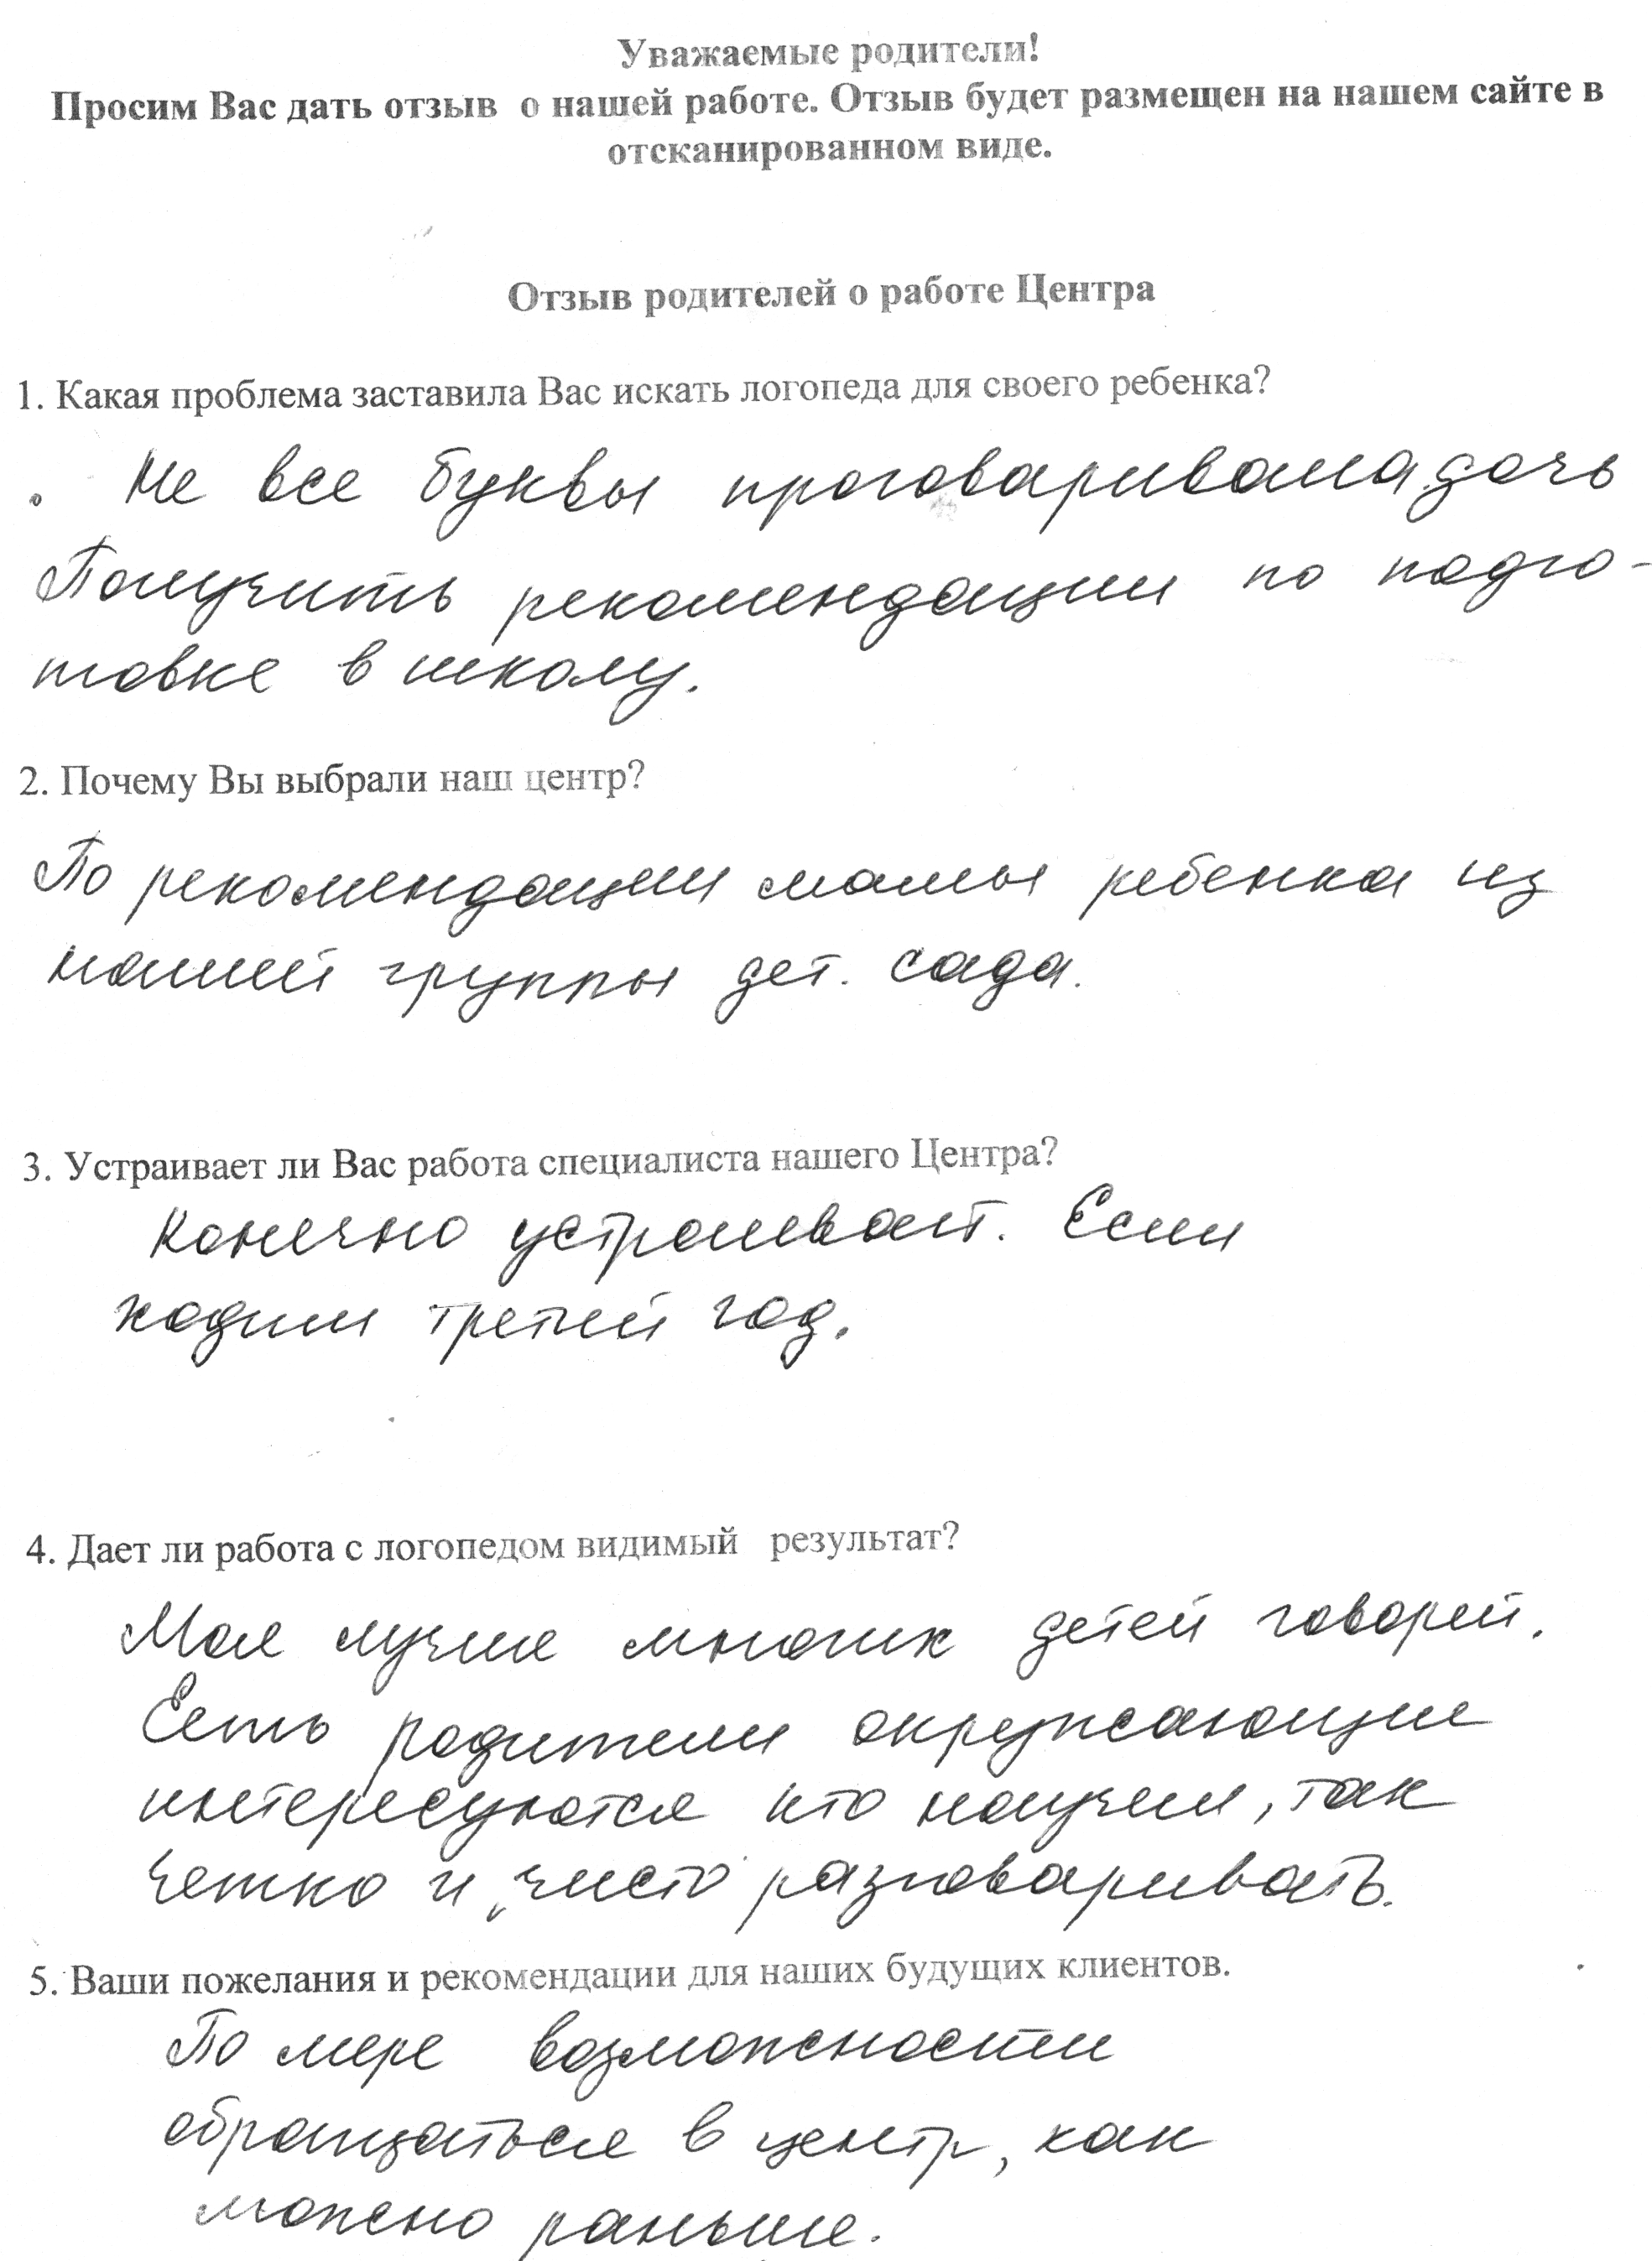 Уважаемые родители!
Просим Вас дать отзыв о нашей работе. Отзыв будет размещен на нашем сайте в
отсканированном виде.
Отзыв родителей о работе Центра
1. Какая проблема заставила Вас искать логопеда для своего ребенка?
. Не все буквы проговаривала дочь
Получить рекомендации по подго-
товке в школу.
2. Почему Вы выбрали наш центр?
По рекомендации мамы ребенка из
нашей группы дет. сада.
3. Устраивает ли Вас работа специалиста нашего Центра?
Конечно устраивает. Если
ходим третий год.
4. Дает ли работа с логопедом видимый результат?
Моя лучше многих детей говорит.
Есть родители окружающие
интересуются кто научил, так
четко и чисто разговаривать.
5. Ваши пожелания и рекомендации для наших будущих клиентов.
По мере возможности
обращаться в центр, как
можно раньше.